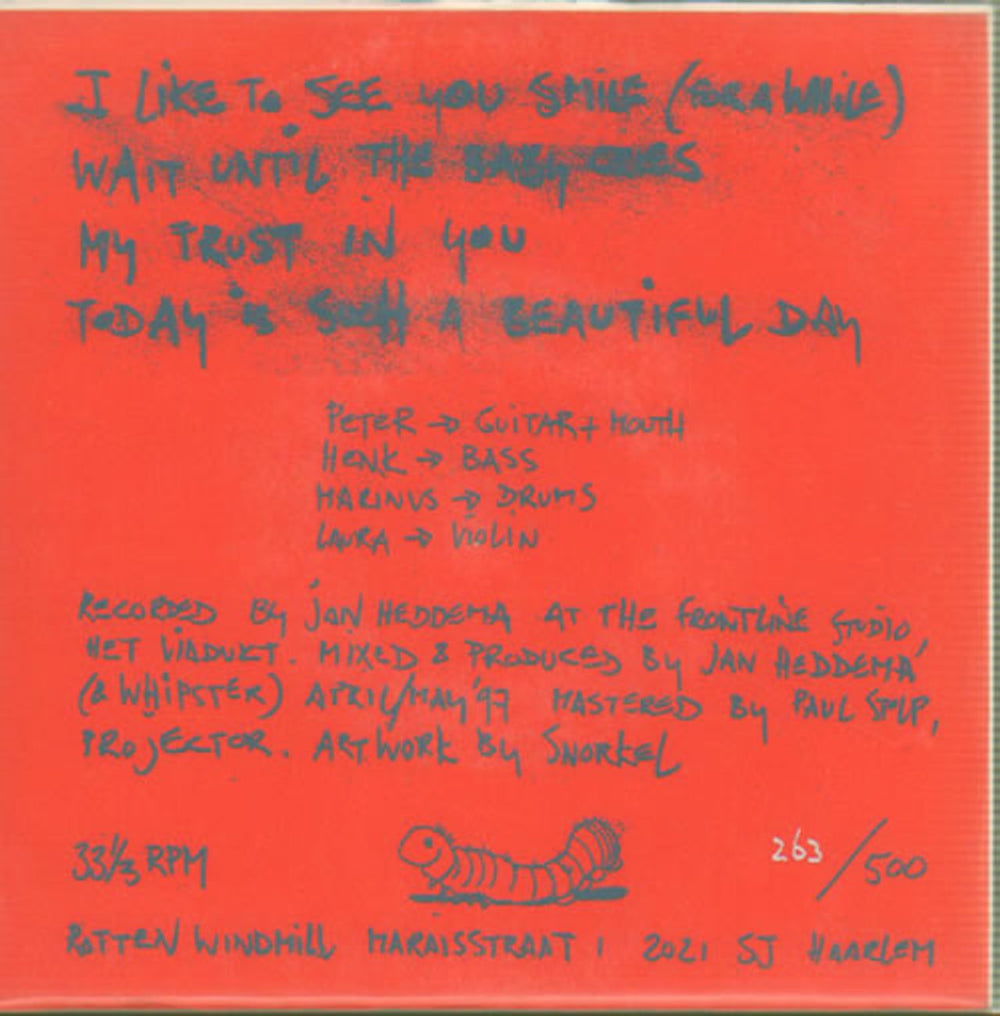 I LIKE TO SEE YOU SMILE (FOR A WHILE)
WAIT UNTIL THE BABY CRIES
MY TRUST IN YOU
TODAY IS SUCH A BEAUTIFUL DAY
PETER → GUITAR + MOUTH
HENK → BASS
MARINUS → DRUMS
LAURA → VIOLIN
RECORDED BY JAN HEDDEMA AT THE FRONTLINE STUDIO,
HET VIADUKT. MIXED & PRODUCED BY JAN HEDDEMA
(& WHIPSTER) APRIL/MAY '97 MASTERED BY PAUL
PROJECTOR. ARTWORK BY SNORKEL
33⅓ RPM
263/500
ROTTEN WINDMILL MARAISSTRAAT 1 2021 SJ HAARLEM